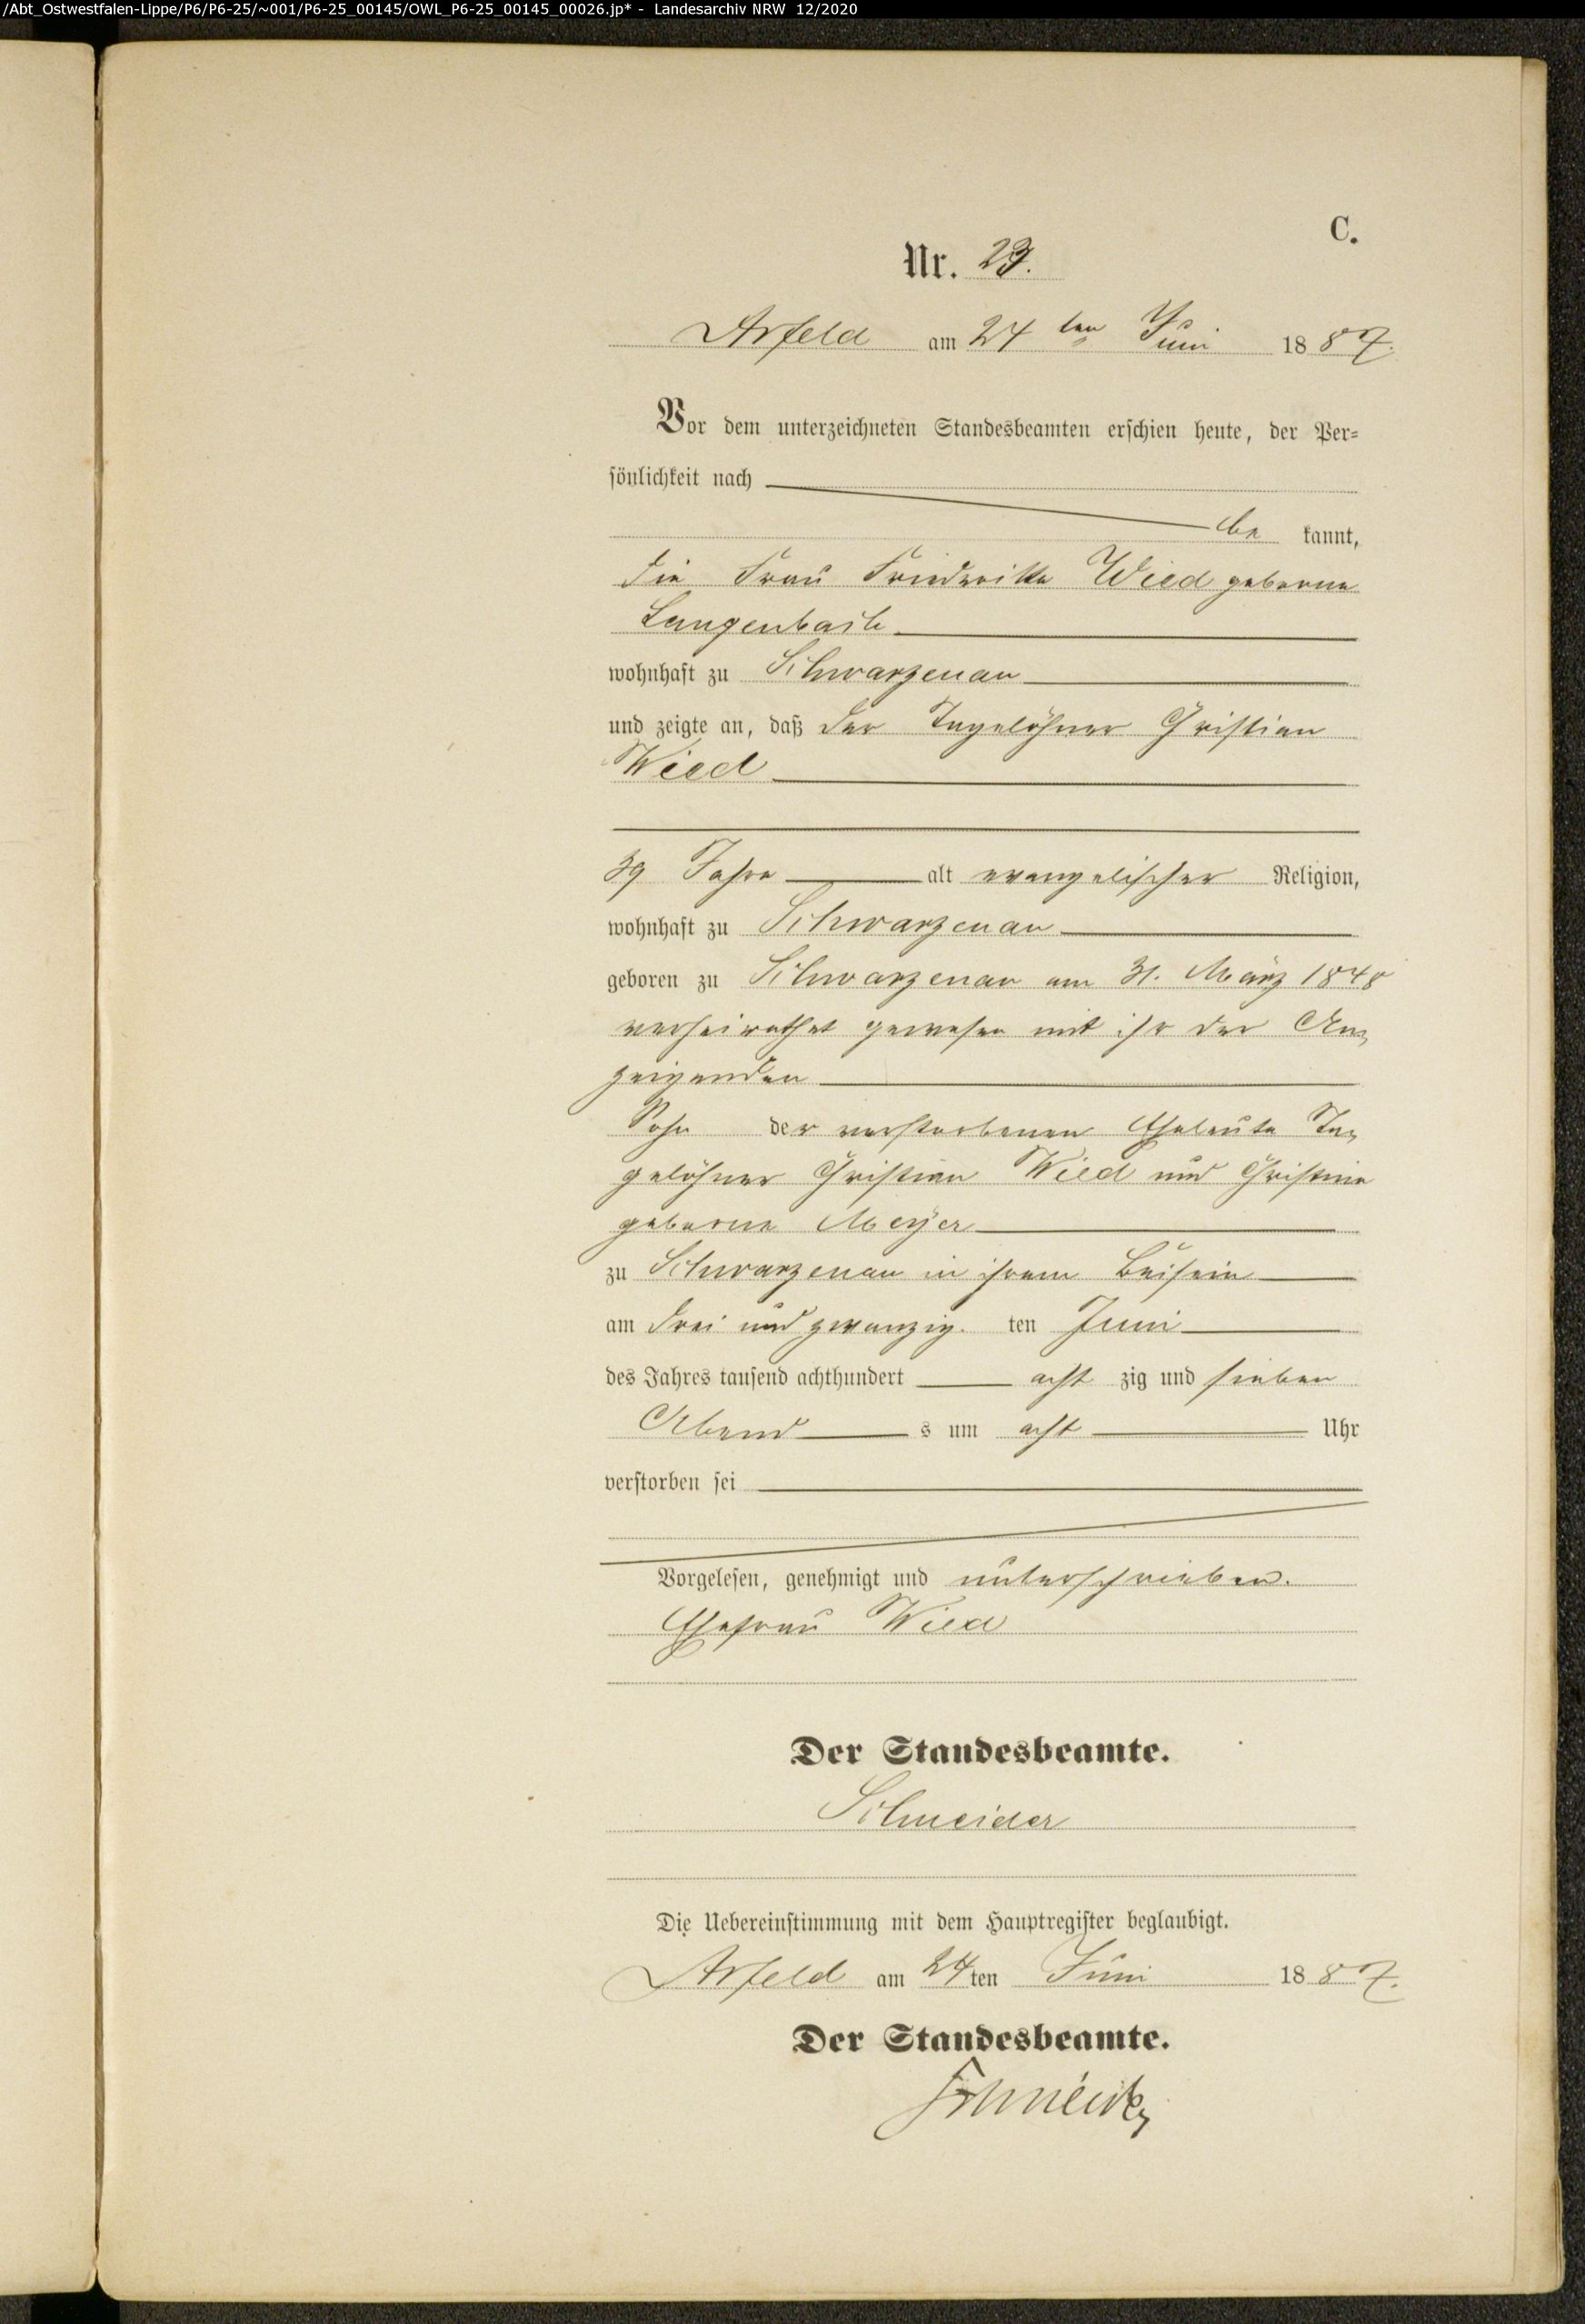 /Abt_Ostwestfalen-Lippe/P6/P6-25/~001/P6-25_00145/OWL_P6-25_00145_00026.jp* - Landesarchiv NRW 12/2020
C.
Nr. 23.
Arfeld am 24 ten Juni 1887.
Vor dem unterzeichneten Standesbeamten erschien heute, der Per-
sönlichkeit nach
be kannt,
die Frau Friederikke Wied geborne
Langenbach
wohnhaft zu Schwarzenau
und zeigte an, daß der Tagelöhner Christian
Wied
39 Jahre alt evangelischer Religion,
wohnhaft zu Schwarzenau
geboren zu Schwarzenau am 31. März 1848
verheirathet gewesen mit ihr der An-
zeigenden
Sohn der verstorbenen Eheleute Ta-
gelöhner Christian Wied und Christine
geborne Meyer
zu Schwarzenau in ihrem Beisein
am drei und zwanzig. ten Juni
des Jahres tausend achthundert acht zig und sieben
Abend s um acht Uhr
verstorben sei
Vorgelesen, genehmigt und unterschrieben.
Ehefrau Wied
Der Standesbeamte.
Schneider
Die Uebereinstimmung mit dem Hauptregister beglaubigt.
Arfeld am 24 ten Juni 1887.
Der Standesbeamte.
Schneider